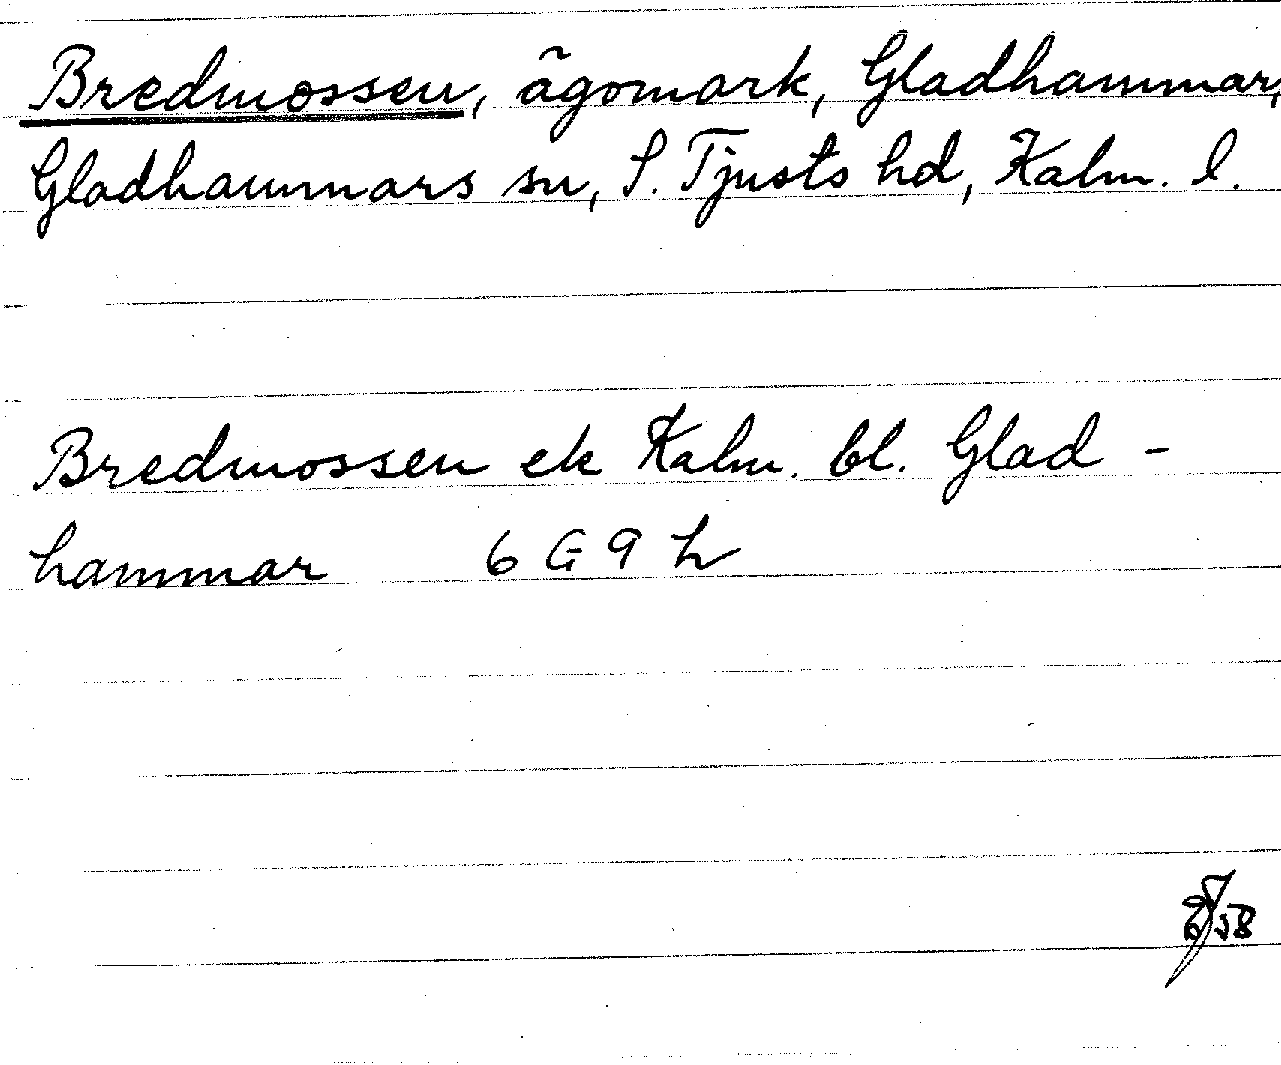 Bredmossen, ägomark, Gladhammar,
Gladhammars sn, S. Tjusts hd, Kalm. l.
Bredmossen ek Kalm. bl. Glad-
hammar 6 G 9 h